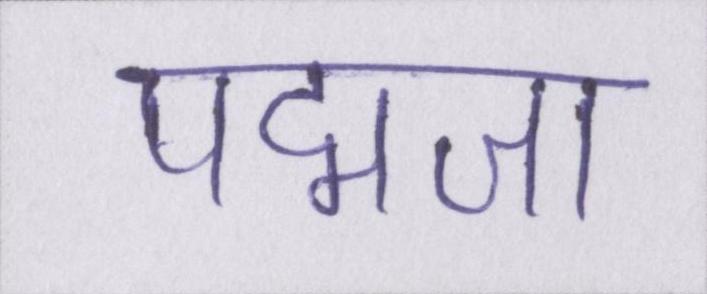 पद्मजा